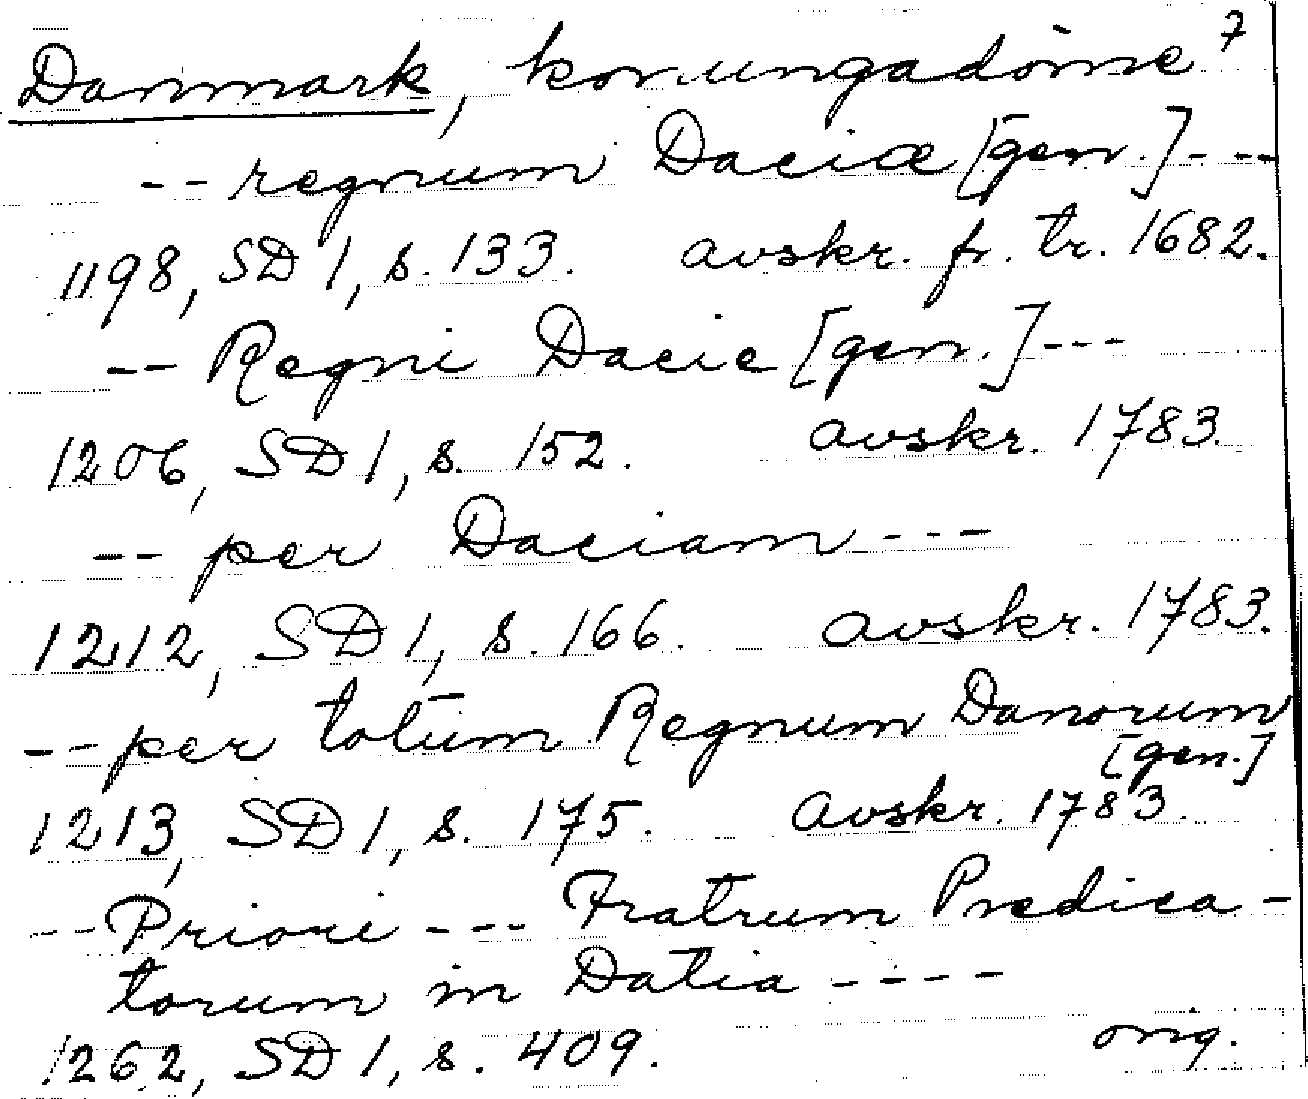 Danmark, konungadöme 7
-- regnum Daciæ [gen.] ---
1198, SD 1, s. 133. avskr. fr. tr. 1682.
-- Regni Dacie [gen.] ---
1206, SD 1, s. 152. avskr. 1783.
-- per Daciam ---
1212, SD 1, s. 166. avskr. 1783.
-- per totum Regnum Danorum
[gen.]
1213, SD 1, s. 175. avskr. 1783.
-- Priori --- Fratrum Predica-
torum in Datia ----
1262, SD 1, s. 409. orig.